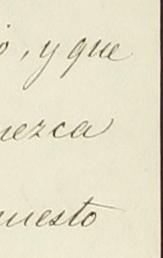 o, y que
nezca
uesto